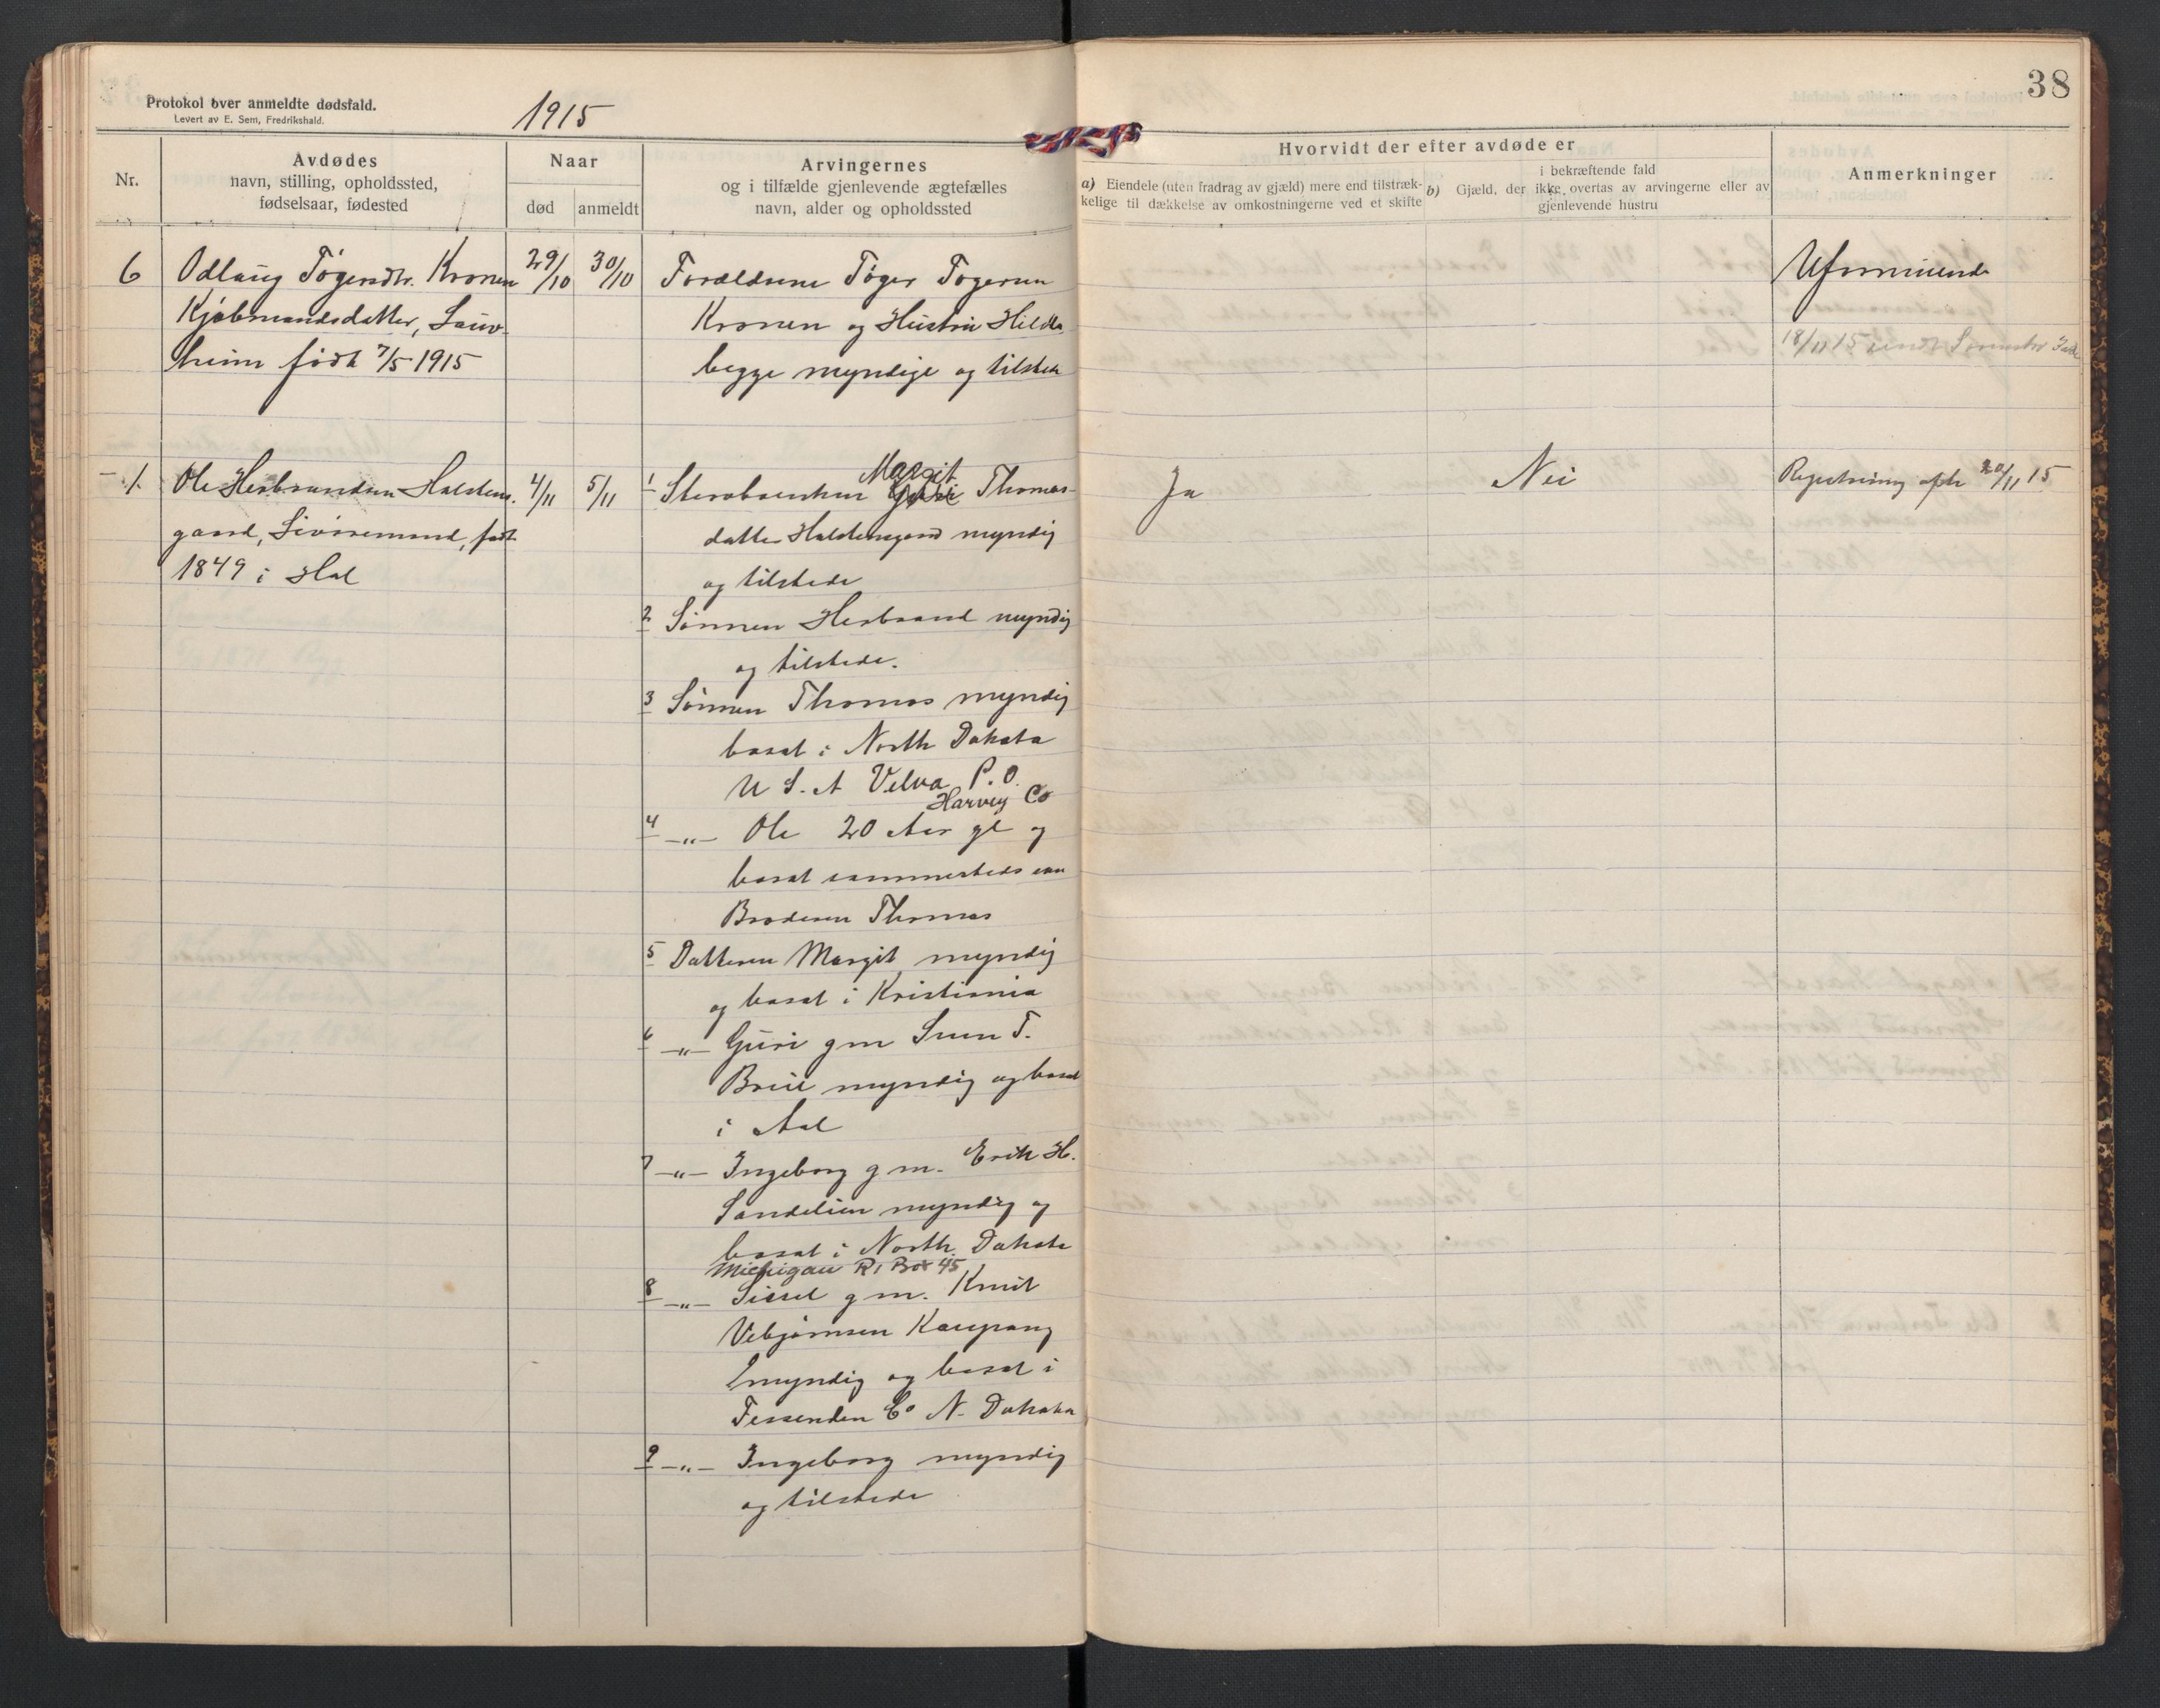 38
Protokol over anmeldte dødsfald.
Levert av E. Sem, Fredrikshald.
1915
Nr.
Avdødes
navn, stilling, opholdssted,
fødselsaar, fødested
Naar
død
anmeldt
Arvingernes
og i tilfælde gjenlevende ægtefælles
navn, alder og opholdssted
Hvorvidt der efter avdøde er
a) Eiendele (uten fradrag av gjæld) mere end tilstræk-
kelige til dækkelse av omkostningerne ved et skifte
i bekræftende fald
b) Gjæld, der ikke overtas av arvingerne eller av
gjenlevende hustru
Anmerkninger
6
Odlaug Tøgersdtr. Kronen
Kjøbmandsdatter, Sauv-
heim født 7/5 1915
29/10
30/10
Forældrene Tøger Togersen
Kronen og Hustru Hilda
begge myndige og tilstede
Uformuende
18/11 15 sendt
1
Ole Herbrandsen Halstens-
gaard, født
1849 i Hol
4/11
5/11
1 Margit
Thomas-
datter Halstensgaard myndig
og tilstede
2 Sønnen Herbrand myndig
og tilstede.
3 Sønnen Thomas myndig
bosat i North Dakota
U S. A Velva P.O.
Harvey Co
4 -"- Ole 20 Aar gl og
bosat sammesteds som
Broderen Thomas
5 Datteren Margit myndig
og bosat i Kristiania
6 -"- Guri g m T.
myndig og bosat
i Aal
7 -"- Ingeborg g m. Erik H.
Sandelien myndig og
bosat i North Dakota
Michigan R1 Box 45
8 -"- Sissel g m. Knut
Vebjørnsen Kaupang
myndig og bosat i
Fessenden Co N. Dakota
9 -"- Ingeborg myndig
og tilstede
Ja
Nei
20/11 15